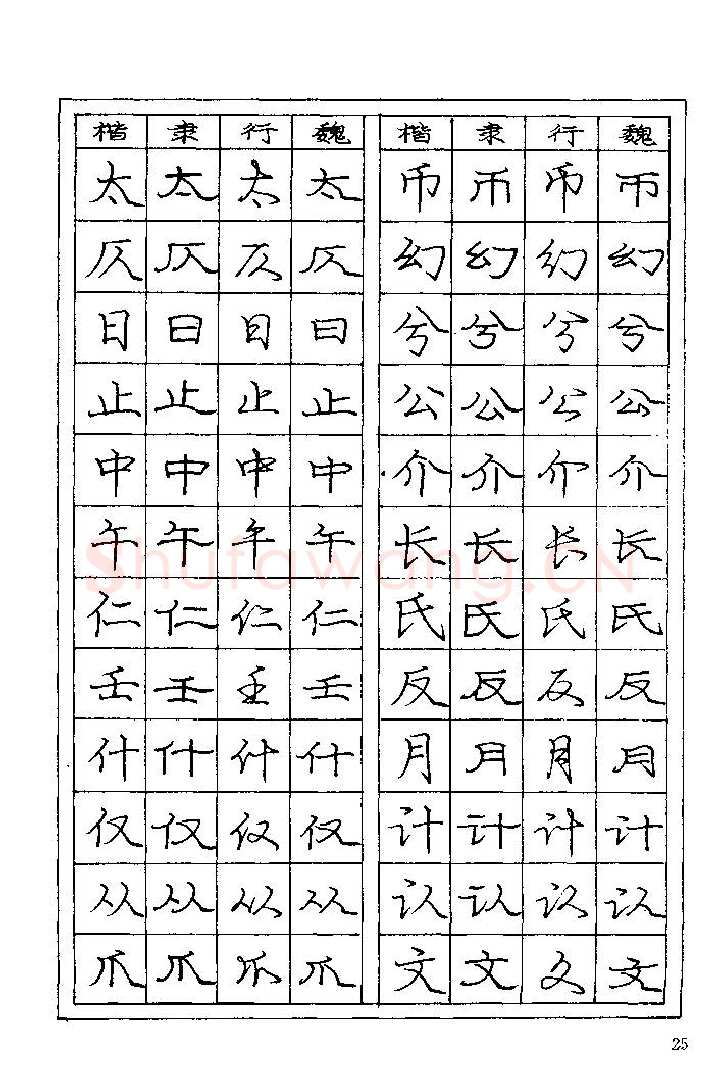 楷 隶 行 魏 楷 隶 行 魏
太 太 太 太 币 币 币 币
仄 仄 仄 仄 幻 幻 幻 幻
日 日 日 日 兮 兮 兮 兮
止 止 止 止 公 公 公 公
中 中 中 中 介 介 介 介
午 午 午 午 长 长 长 长
Shufawang.CN
仁 仁 仁 仁 氏 氏 氏 氏
壬 壬 壬 壬 反 反 反 反
什 什 什 什 月 月 月 月
仅 仅 仅 仅 计 计 计 计
从 从 从 从 认 认 认 认
爪 爪 爪 爪 文 文 文 文
25